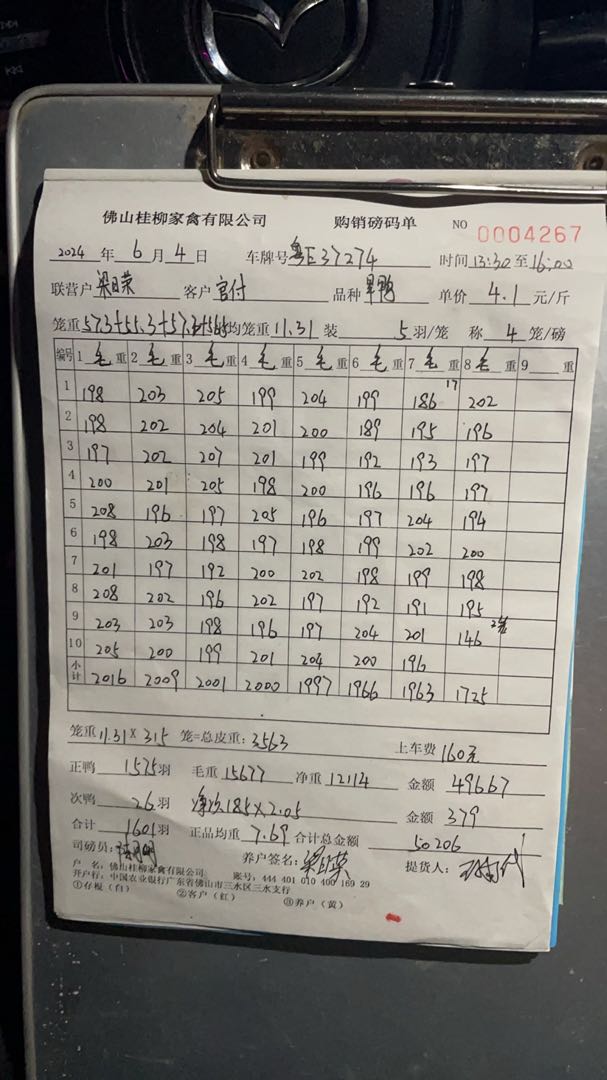 佛山桂柳家禽有限公司 购销磅码单 NO 0004267
2024 年 6 月 4 日 车牌号 粤E37274 时间 13:30 至 16:00
联营户 梁日荣 客户 官付 品种 单价 4.1 元/斤
笼重 57.3+55.3+57.3+56.5 均笼重 11.31 装 5 羽/笼 称 4 笼/磅
编号 1 毛 重 2 毛 重 3 毛 重 4 毛 重 5 毛 重 6 毛 重 7 毛 重 8 毛 重 9 重
17
1 198 203 205 199 204 199 186 202
2 198 202 204 201 200 189 195 196
3 197 202 207 201 199 192 193 197
4 200 201 205 198 200 196 196 197
5 208 196 197 205 196 197 204 194
6 198 203 198 197 198 199 202 200
7 201 197 192 200 202 198 199 198
8 208 202 196 202 197 192 191 195
9 203 203 198 196 197 204 201 146 2笼
10 205 200 199 201 204 200 196
小计 2016 2009 2001 2000 1997 1966 1963 1725
笼重 11.31×315 笼=总皮重: 3563 上车费 160元
正鸭 1575 羽 毛重 15677 净重 12114 金额 49667
次鸭 26 羽 净次185×2.05 金额 379
合计 1601 羽 正品均重 7.69 合计总金额 50206
司磅员: 养户签名: 梁日荣 提货人:
户 名: 佛山桂柳家禽有限公司 账号: 444 401 010 400 169 29
开户行: 中国农业银行广东省佛山市三水区三水支行
①存根(白) ②客户(红) ③养户(黄)